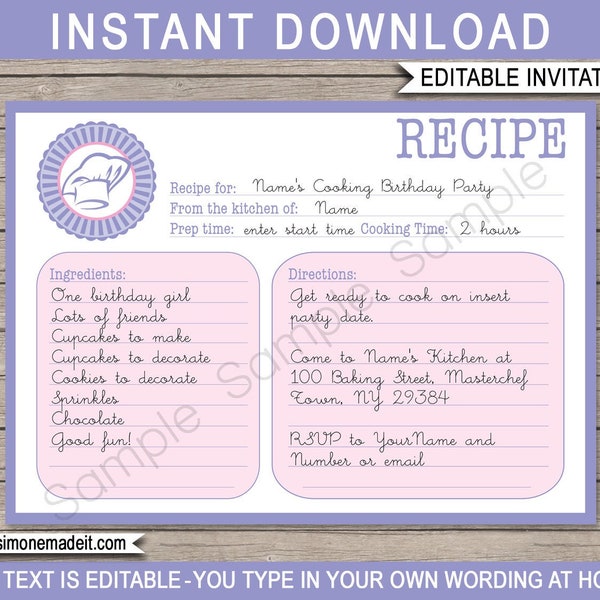 INSTANT DOWNLOAD
EDITABLE INVITAT
RECIPE
Recipe for: Name's Cooking Birthday Party
From the kitchen of: Name
Prep time: enter start time Cooking Time: 2 hours
Ingredients:
One birthday girl
Lots of friends
Cupcakes to make
Cupcakes to decorate
Cookies to decorate
Sprinkles
Chocolate
Good fun!
Directions:
Get ready to cook on insert
party date.
Come to Name's Kitchen at
100 Baking Street, Masterchef
Town, NY 29384
RSVP to YourName and
Number or email
Sample Sample Sample Sample
simonemadeit.com
TEXT IS EDITABLE - YOU TYPE IN YOUR OWN WORDING AT HO